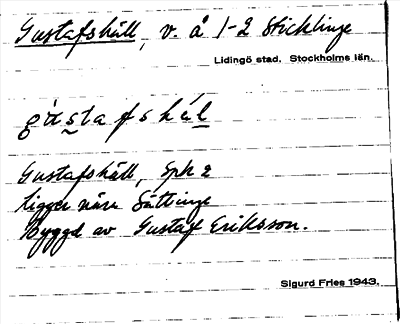 Gustafshäll, v. å 1-2 Sticklinge
Lidingö stad. Stockholms län.
gùstafshál
Gustafshäll, Sph 2
ligger nära Sättinge
byggd av Gustaf Eriksson.
Sigurd Fries 1943.